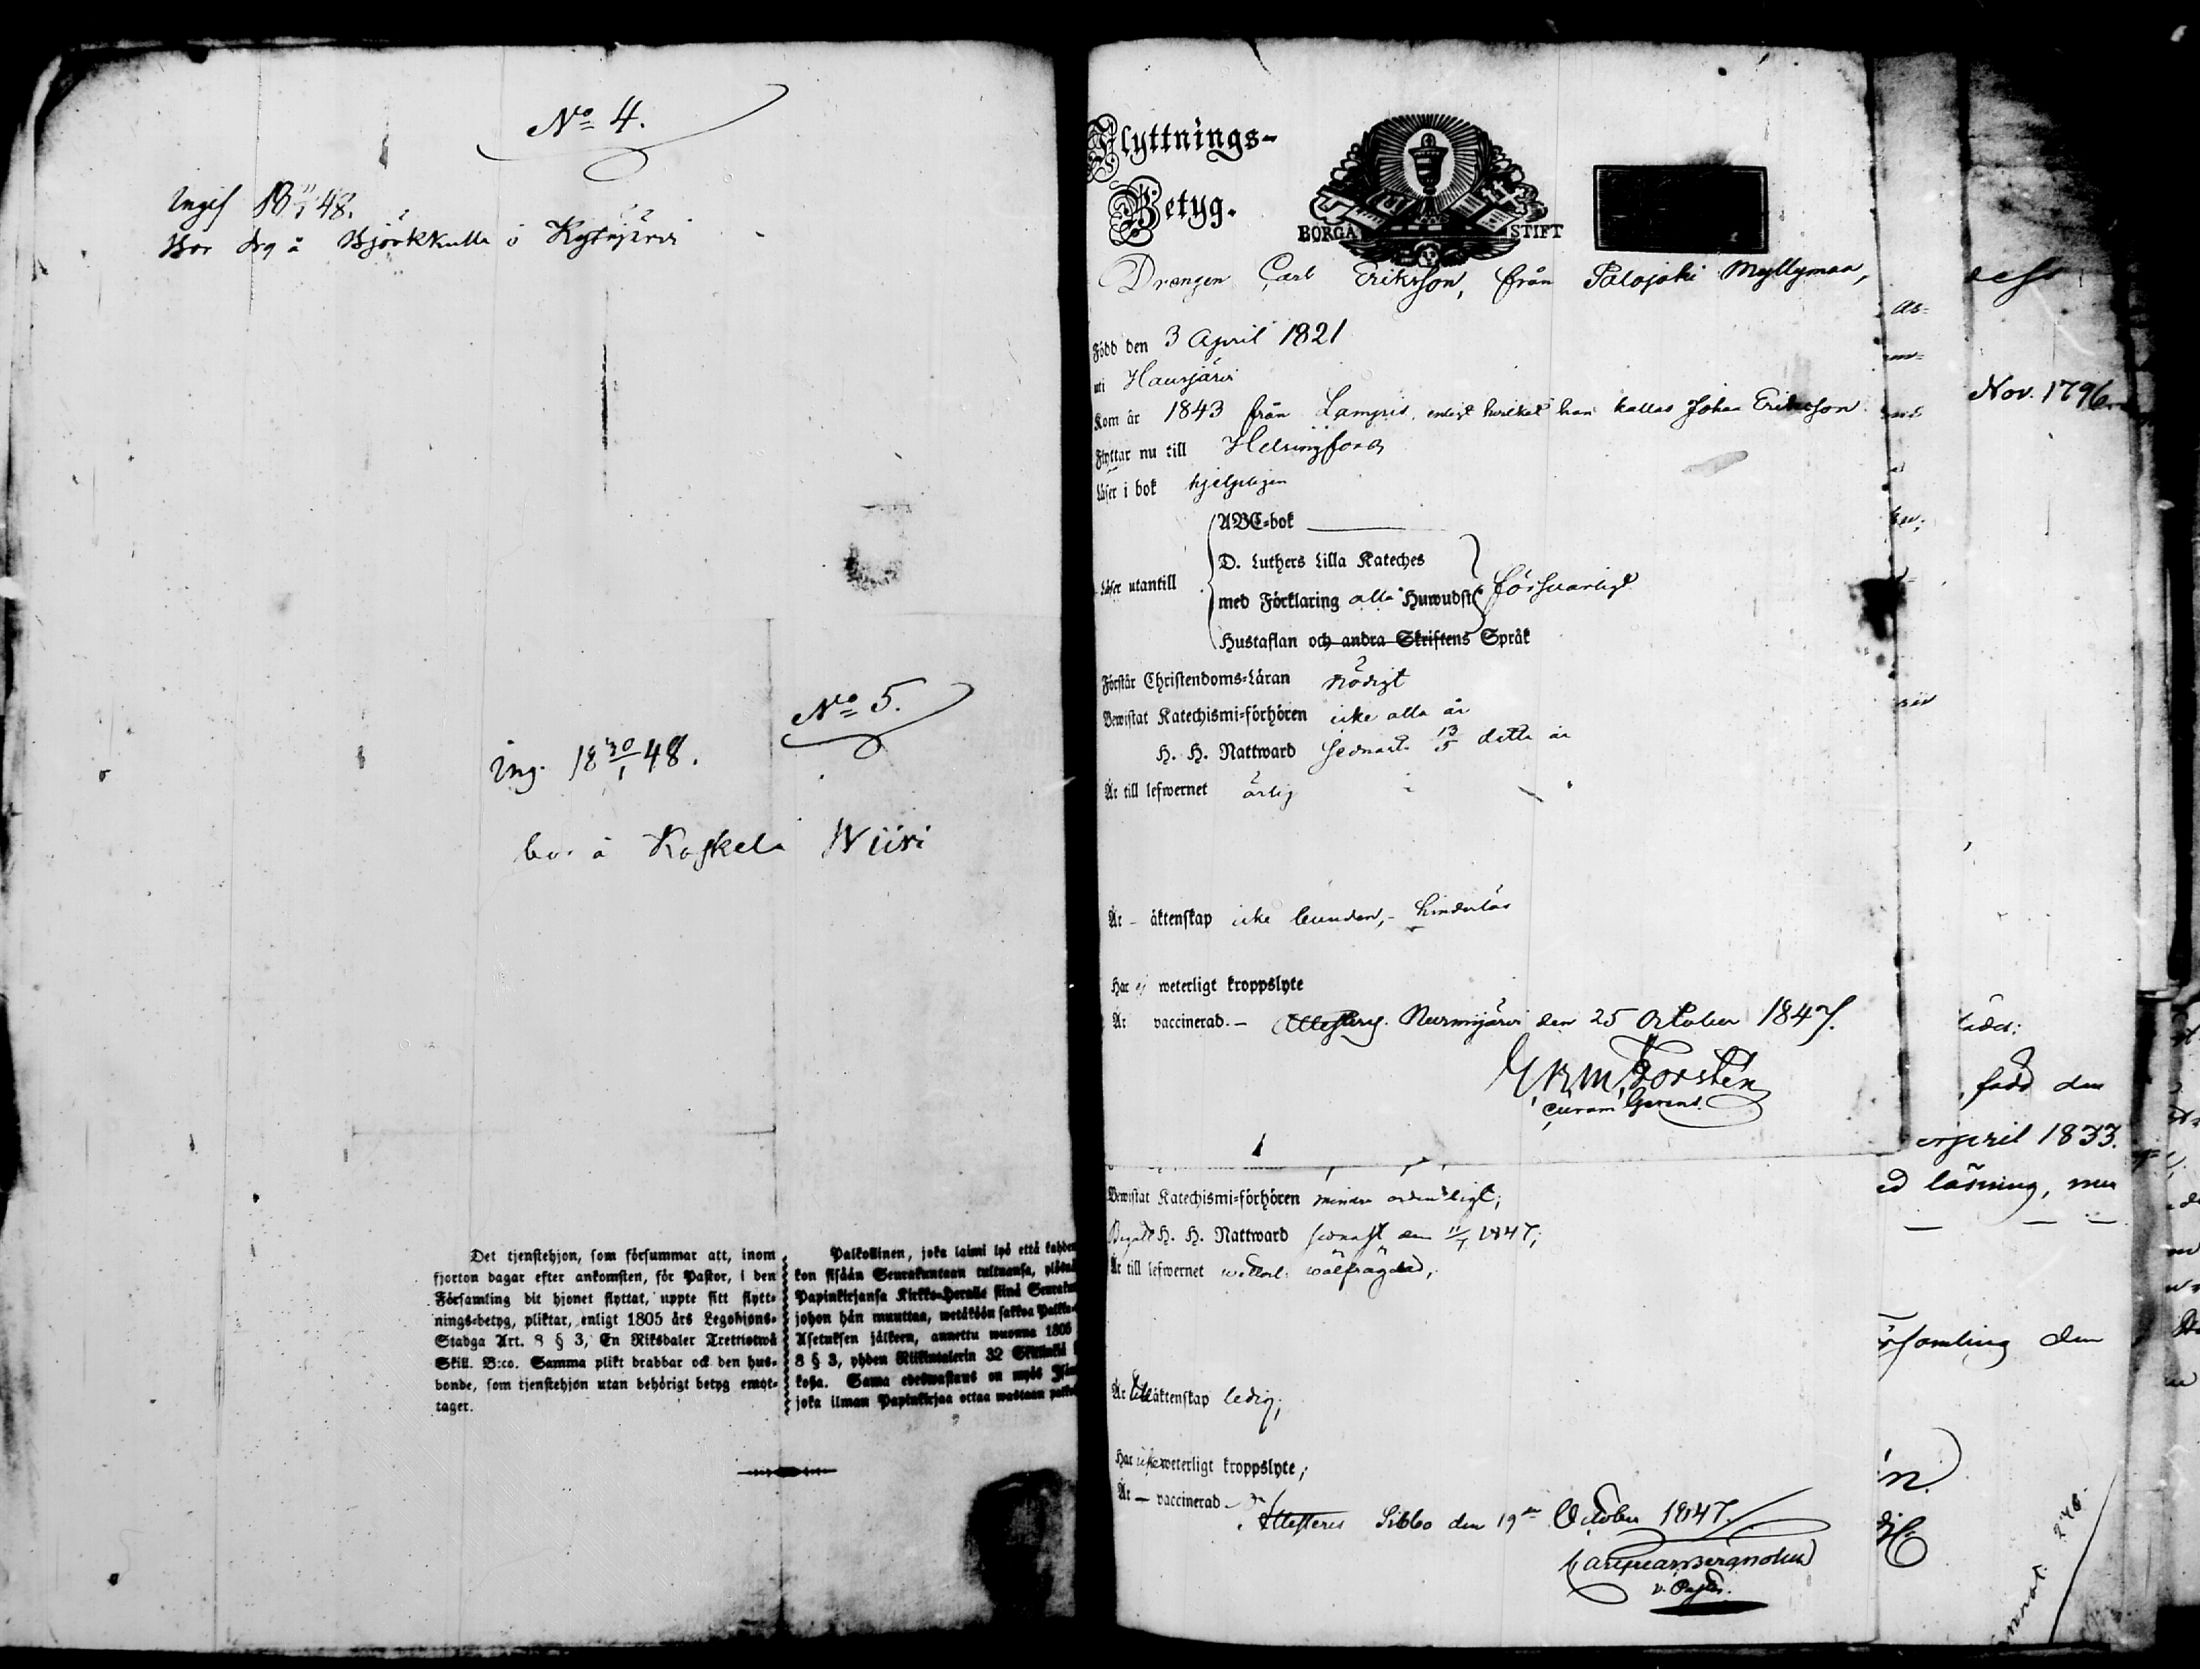 No 4.
Ingif 18 11/1 48.
Bor drg å Björkkulla i Kytäjärvi
No 5.
Ing. 18 30/1 48.
bor å Koskela Wiiri
Det tjenstehjon, som försummar att, inom
fjorton dagar efter ankomsten, för Pastor, i den
Församling dit hjonet flyttat, uppte sitt flytt-
nings-betyg, pliktar, enligt 1805 års Legohjons-
Stadga Art. 8 § 3, En Riksdaler Trettiotwå
Skill. B:co. Samma plikt drabbar ock den hus-
bonde, som tjenstehjon utan behörigt betyg emot-
tager.
Palkollinen, joka laimi lyö että kahden
kon sisään Seurakuntaan tultuansa,
Papinkirjansa Kirkko-Herralle siinä
johon hän muuttaa, wetäköön sakkoa
Asetuksen jälkeen, annettu wuonna 1805
8 § 3, yhden Riikintalerin 32 Skillinkiä
koßa. Sama edeswastaus on myös
joka ilman Papinkirjaa ottaa wastaan
Flyttnings-
Betyg.
BORGÅ STIFT
Drengen Carl Eriksson, från Palojoki Myllymaa,
Född den 3 April 1821
uti Hausjärvi
Kom år 1843 från enligt hvilket han kallas Johan Eriksson
Flyttar nu till Helsingfors
Läser i bok hjelpligen
ABC-bok
Läser utantill
D. Luthers Lilla Kateches
med Förklaring alla Huwudst försvarligt
Hustaflan och andra Skriftens Språk
Förstår Christendoms-Läran nödigt
Bewistat Katechismi-förhören icke alla år
H. H. Nattward sednast 13/5 detta år
Är till lefwernet ärlig
Är – äktenskap icke bunden, – hinderlös
Har ej weterligt kroppslyte
Är vaccinerad. – Attesteras. Nurmijärvi den 25 October 1847.
Forstén
curam Gerens.
Bewistat Katechismi-förhören mindre ordentligt;
Begått H. H. Nattward sednast den 11/7 1847;
Är till lefwernet wälfrägdad,
Är till äktenskap ledig;
Har icke weterligt kroppslyte;
Är — vaccinerad
Attesteres Sibbo den 19de October 1847.
v. Pastor.
Nov. 1796
född den
April 1833.
läsning, men
församling den